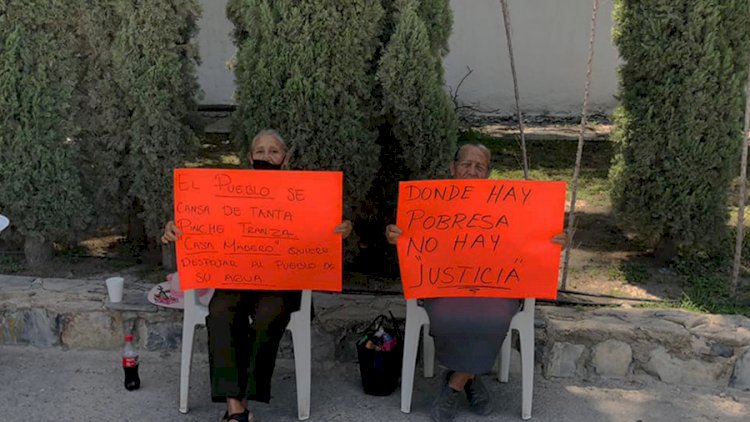 EL PUEBLO SE
CANSA DE TANTA
PINCHE TRANZA.
"CASA MADERO" QUIERE
DESPOJAR AL PUEBLO DE
SU AGUA
DONDE HAY
POBRESA
NO HAY
"JUSTICIA"